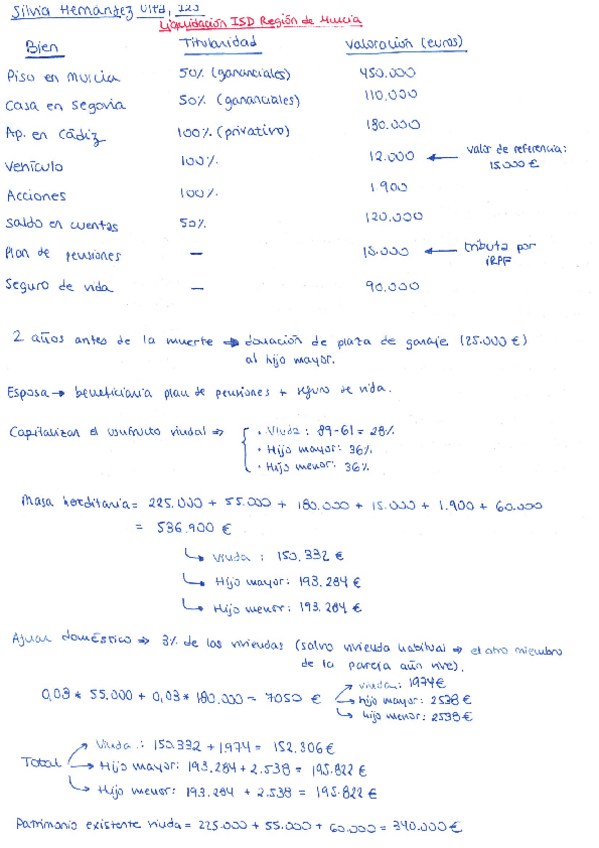 Silvia Hernández Ulld, I2J
Liquidación ISD Región de Murcia
Bien Titularidad Valoración (euros)
Piso en Murcia 50% (gananciales) 450.000
Casa en Segovia 50% (gananciales) 110.000
Ap. en Cádiz 100% (privativo) 180.000
Vehículo 100% 12.000 ← valor de referencia: 15.000 €
Acciones 100% 1.900
Saldo en cuentas 50% 120.000
Plan de pensiones — 18.000 ← tributa por IRPF
Seguro de vida — 90.000
2 años antes de la muerte → donación de plaza de garaje (25.000 €)
al hijo mayor.
Esposa → beneficiaria plan de pensiones + seguro de vida.
Capitalizar el usufruto viudal ⇒ { · Viuda: 89-61 = 28%
· Hijo mayor: 36%
· Hijo menor: 36%
Masa hereditaria = 225.000 + 55.000 + 180.000 + 15.000 + 1.900 + 60.000
= 536.900 €
↳ Viuda: 150.332 €
↳ Hijo mayor: 193.284 €
↳ Hijo menor: 193.284 €
Ajuar doméstico ⇒ 3% de las viviendas (salvo vivienda habitual ⇒ el otro miembro
de la pareja aún vive).
0,03 * 55.000 + 0,03 * 180.000 = 7050 € → viuda: 1974 €
→ hijo mayor: 2538 €
↳ hijo menor: 2538 €
Total → Viuda: 150.332 + 1974 = 152.306 €
→ Hijo mayor: 193.284 + 2.538 = 195.822 €
↳ Hijo menor: 193.284 + 2.538 = 195.822 €
Patrimonio existente viuda = 225.000 + 55.000 + 60.000 = 340.000 €